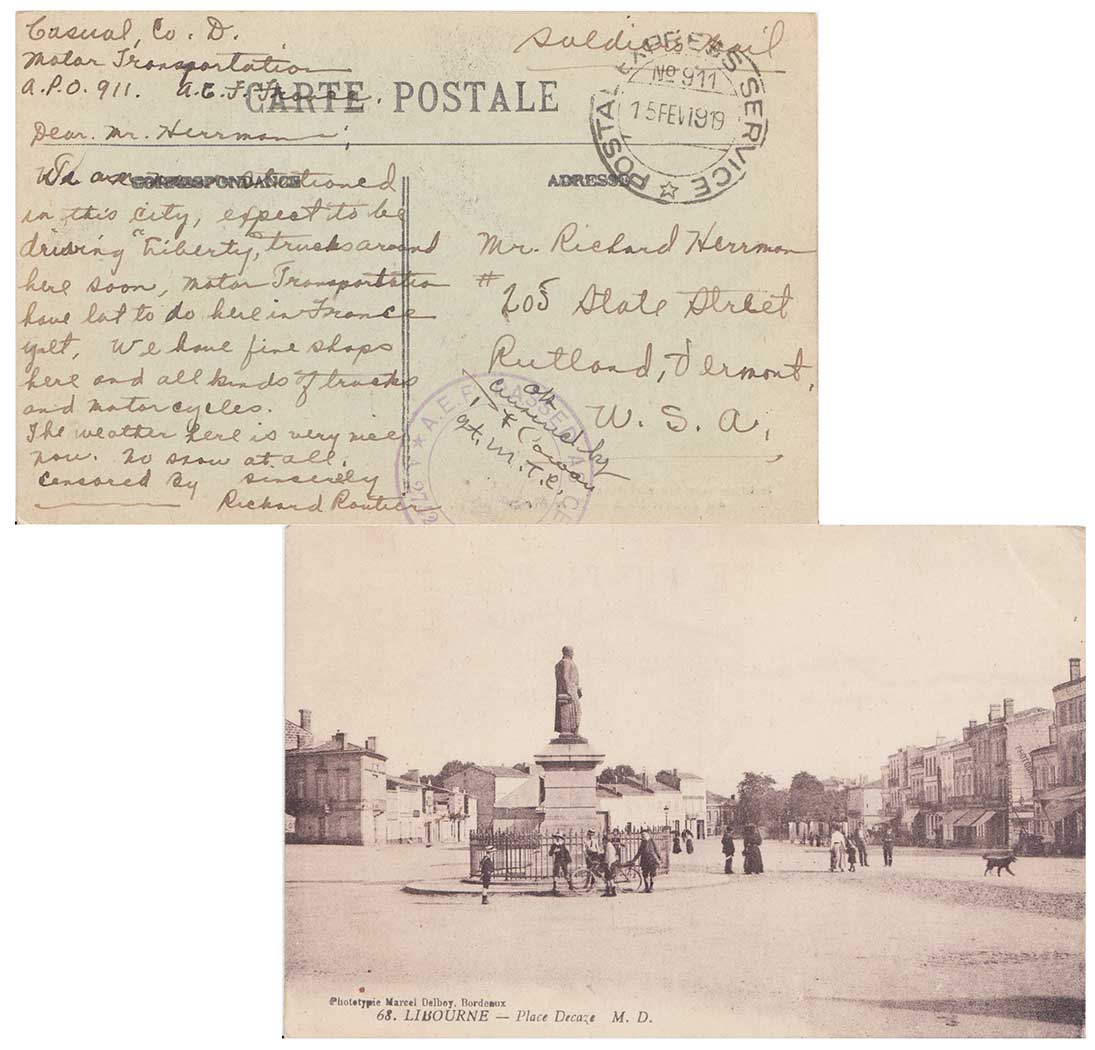 Casual, Co. D.
Motor Transportation
A.P.O. 911. A.E.F. France.
Soldier's Mail
CARTE POSTALE
POSTAL EXPRESS SERVICE
No 911
15 FEV 1919
Dear. Mr. Herrman;
CORRESPONDANCE
ADRESSE
We are stationed
in this city, expect to be
driving "Liberty" trucks around
here soon, Motor Transportation
have lot to do here in France
yet, We have fine shops
here and all kinds of trucks
and motorcycles.
The weather here is very nice
now. No snow at all.
Censored By Sincerely
Richard Routier
Mr. Richard Herrman
# 205 State Street
Rutland, Vermont,
W. S. A,
OK
Censored by
M.T.C.
A.E.F. PASSED A
CE
68. LIBOURNE — Place Decaze M. D.
Phototypie Marcel Delboy, Bordeaux